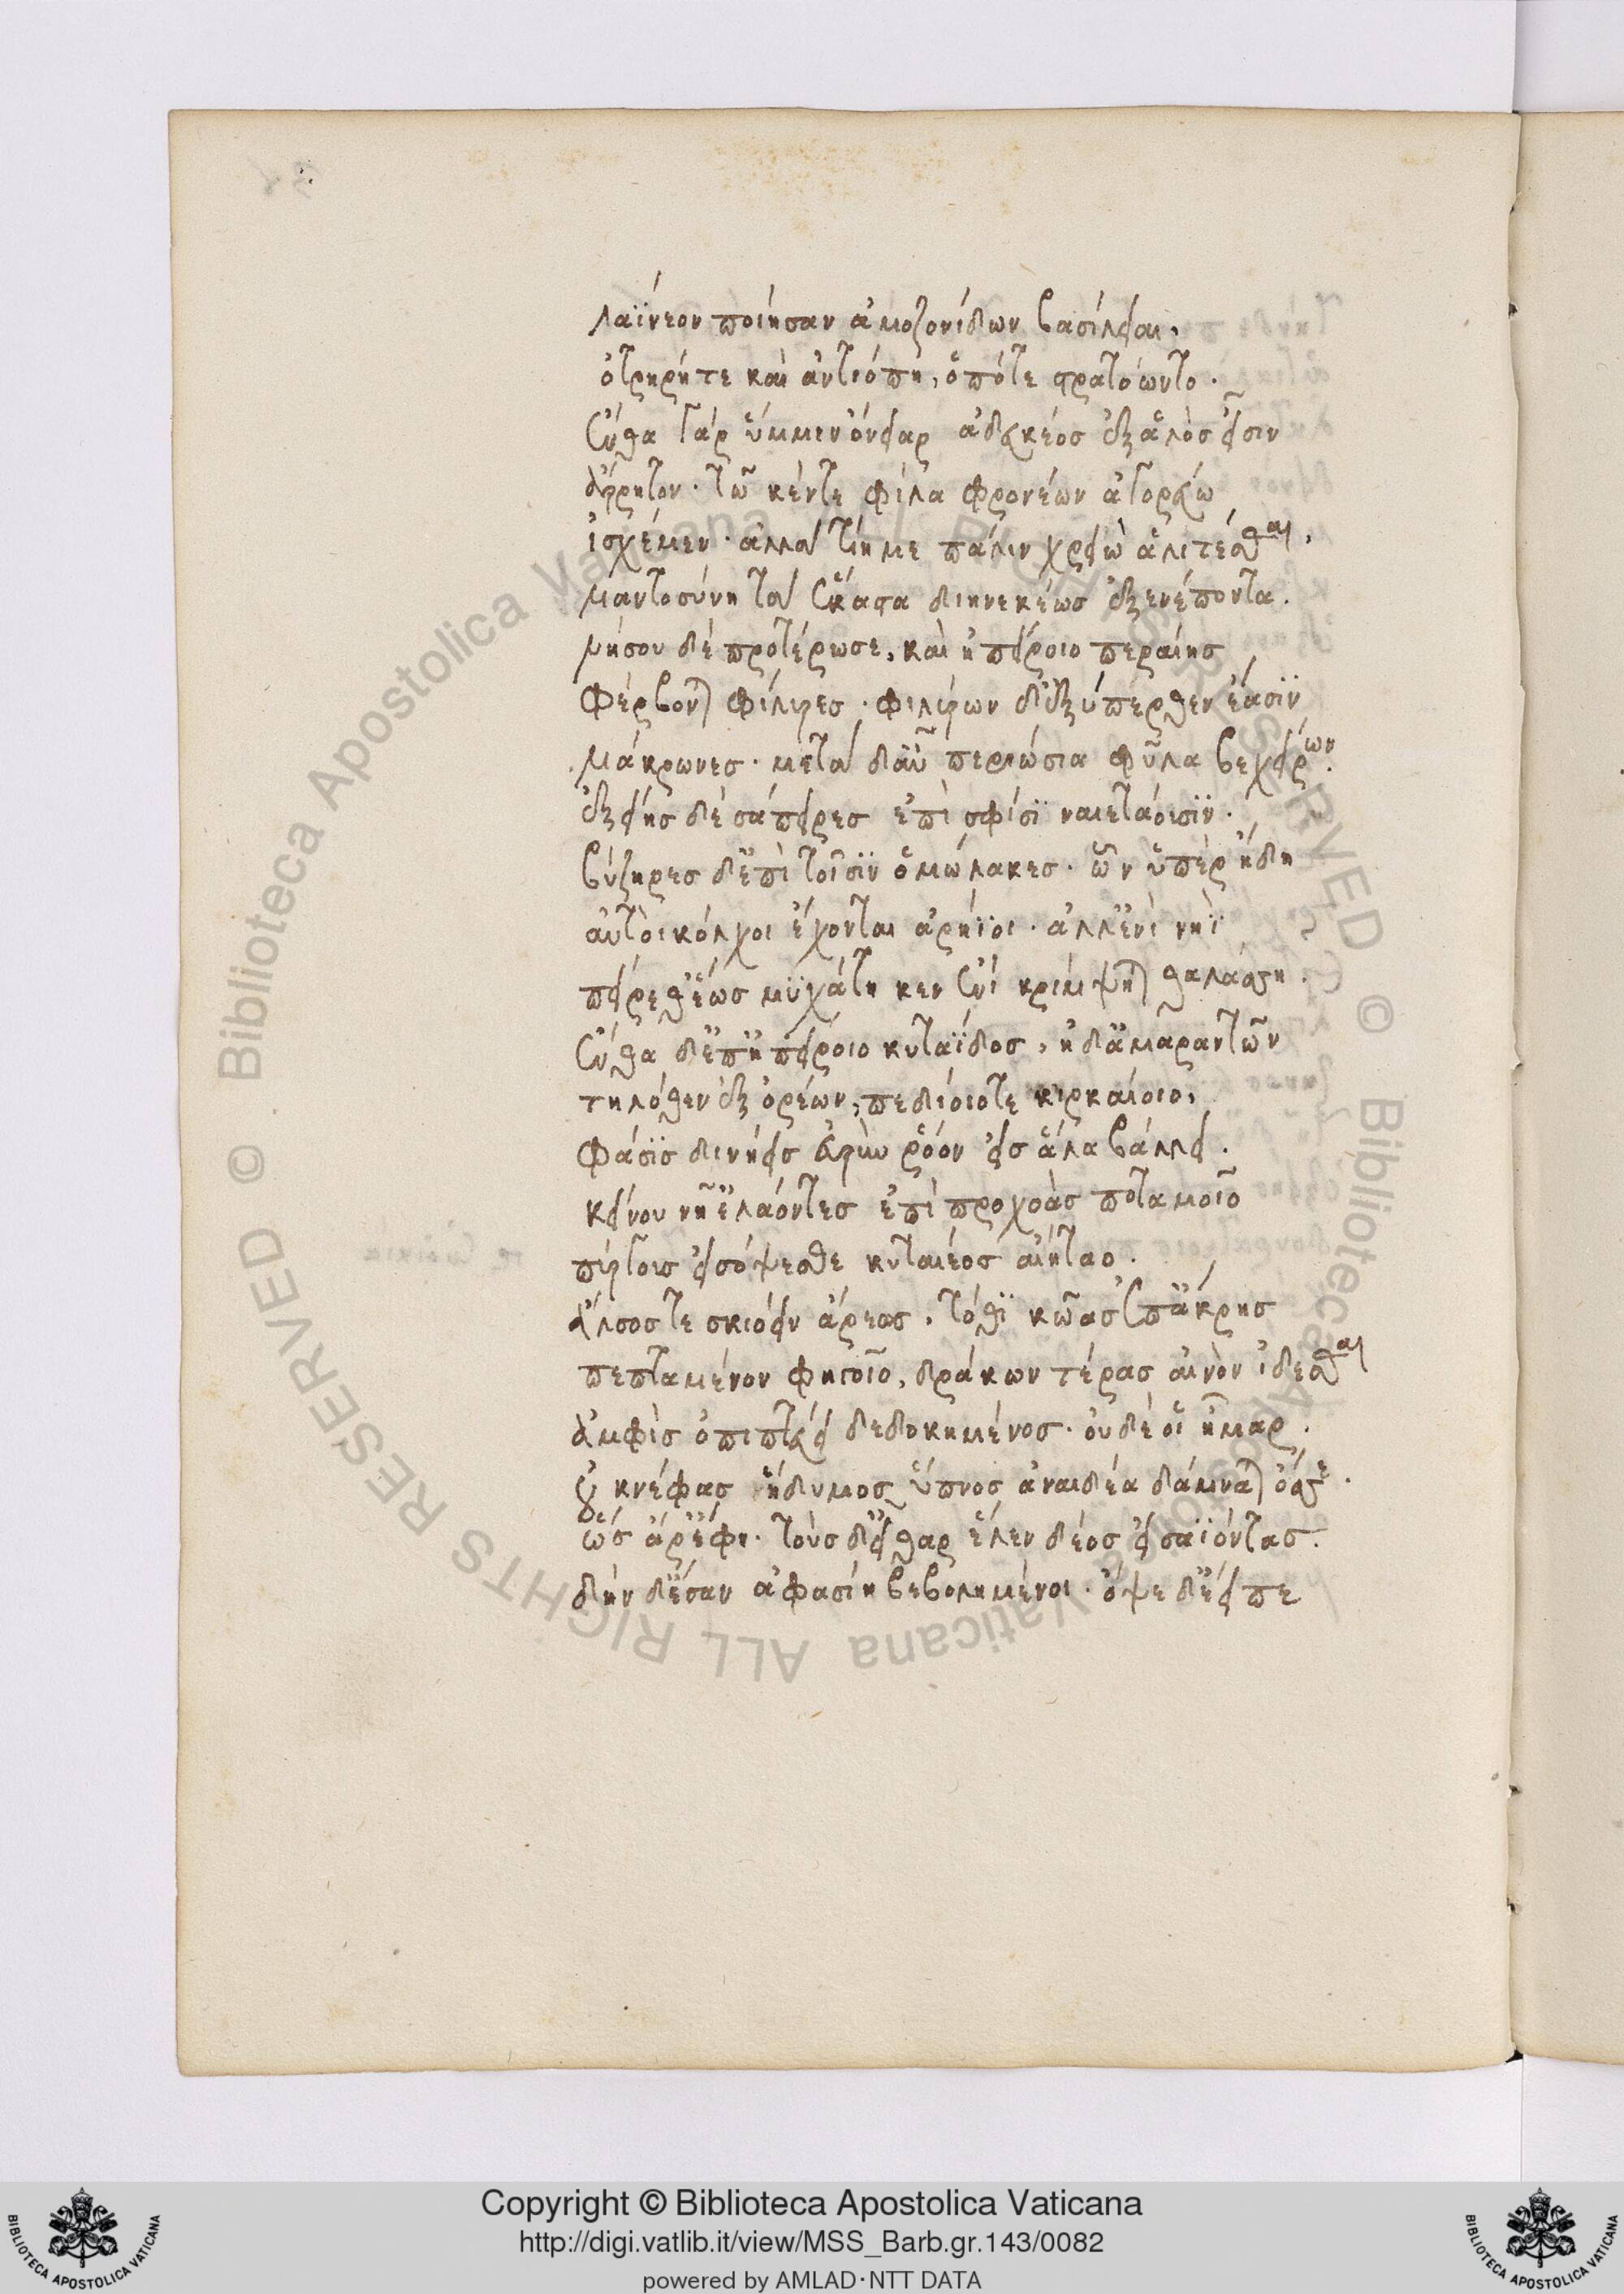 λαΐνεον ποίησαν ἀμαζονίδων βασίλειαι,
ὀτρηρήτε καὶ ἀντιόπη, ὁπότε στρατόωντο.
ἔνθα γάρ ὕμμιν ὄνειαρ ἀδευκέος ἐξ ἁλὸς εἶσιν
ἄρρητον. τῶ κέντε φίλα φρονέων ἀγορεύω
ἰσχέμεν. ἀλλὰ τίη με πάλιν χρειὼ ἀλιτέσθαι,
μαντοσύνη τὰ ἕκαστα διηνεκέως ἐξενέποντα.
νήσου δὲ προτέρωσε, καὶ ἠπείροιο περαίης
φέρβονται φίλυρες. φιλύρων δ' ἐξ ὑπέρθεν ἔασϊν
μάκρωνες. μετὰ δ' αὖ περιώσια φῦλα βεχείρων.
ἐξείης δὲ σάπειρες ἐπὶ σφίσϊ ναιετάουσϊν.
βύζηρες δ' ἐπὶ τοῖσϊν ὁμώλακες. ὧν ὑπὲρ ἤδη
αὐτοὶ κόλχοι ἔχονται ἀρήϊοι. ἀλλ' ἐνὶ νηῒ
πείρεθ' ἕως μϋχάτη κεν ἐνὶ κρίμψηται θαλάσση.
ἔνθα δ' ἐπ' ἠπείροιο κυταΐδος, ἠδ' ἀμαραντῶν
τηλόθεν ἐξ ὀρέων, πεδίοιοτε κιρκαίοιο,
φάσϊς δινήεις εὐρὺν ῥόον εἰς ἅλα βάλλει.
κείνου νῆ' ἐλάοντες ἐπὶ προχοὰς ποταμοῖο
πύργους εἰσόψεσθε κυταιέος αἰήταο.
ἄλσοστε σκιόειν ἄρεος, τόθϊ κῶας ἐπ' ἄκρης
πεπταμένον φηγοῖο, δράκων τέρας αἰνὸν ἰδέσθαι
ἀμφὶς ὀπιπτεύει δεδοκημένος. οὐδέ οἱ ἦμαρ.
οὐ κνέφας ἥδυμος ὕπνος ἀναιδέα δάμναται ὄσσε.
ὣς ἄρ' ἔφη. τοὺς δ' εἶθαρ ἕλεν δέος εἰσαΐοντας.
δὴν δ' ἔσαν ἀφασίη βεβολημένοι. ὀψὲ δ' ἔειπε
Copyright © Biblioteca Apostolica Vaticana
http://digi.vatlib.it/view/MSS_Barb.gr.143/0082
powered by AMLAD·NTT DATA
BIBLIOTECA APOSTOLICA VATICANA
BIBLIOTECA APOSTOLICA VATICANA
© Biblioteca Apostolica Vaticana ALL RIGHTS RESERVED © Biblioteca Apostolica Vaticana ALL RIGHTS RESERVED